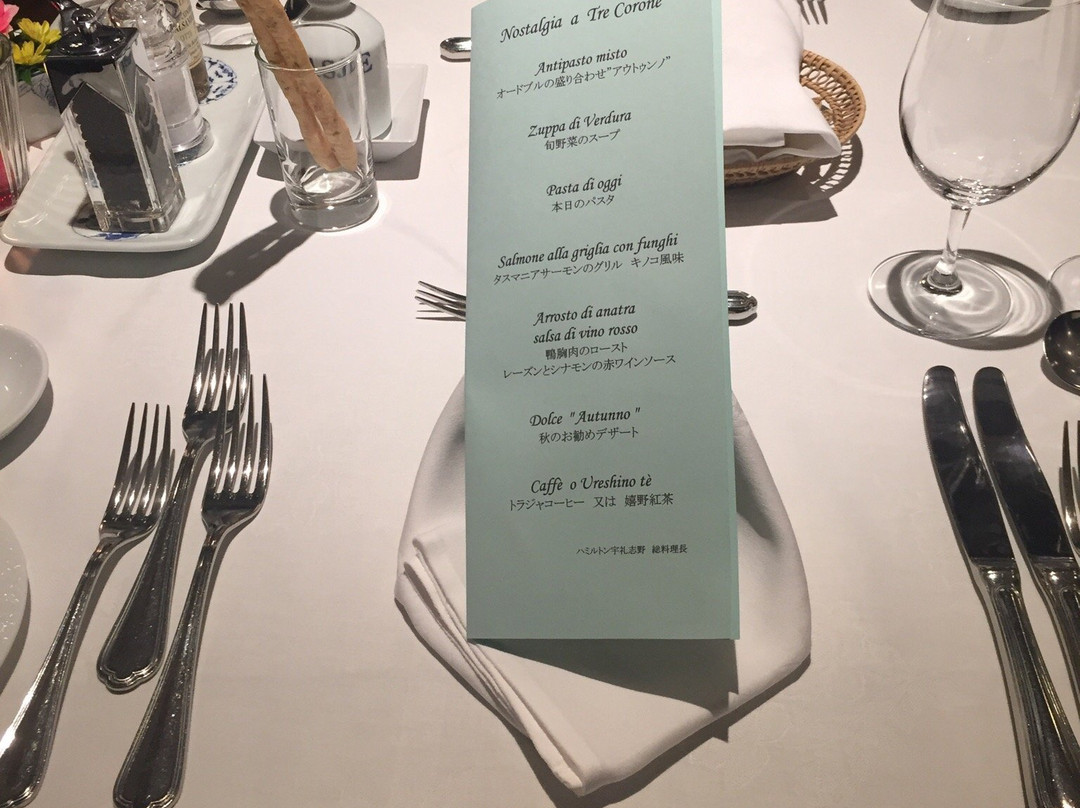 Nostalgia a Tre Corone
Antipasto misto
オードブルの盛り合わせ"アウトゥンノ"
Zuppa di Verdura
旬野菜のスープ
Pasta di oggi
本日のパスタ
Salmone alla griglia con funghi
タスマニアサーモンのグリル キノコ風味
Arrosto di anatra
salsa di vino rosso
鴨胸肉のロースト
レーズンとシナモンの赤ワインソース
Dolce " Autunno "
秋のお勧めデザート
Caffè o Ureshino tè
トラジャコーヒー 又は 嬉野紅茶
ハミルトン宇礼志野 総料理長